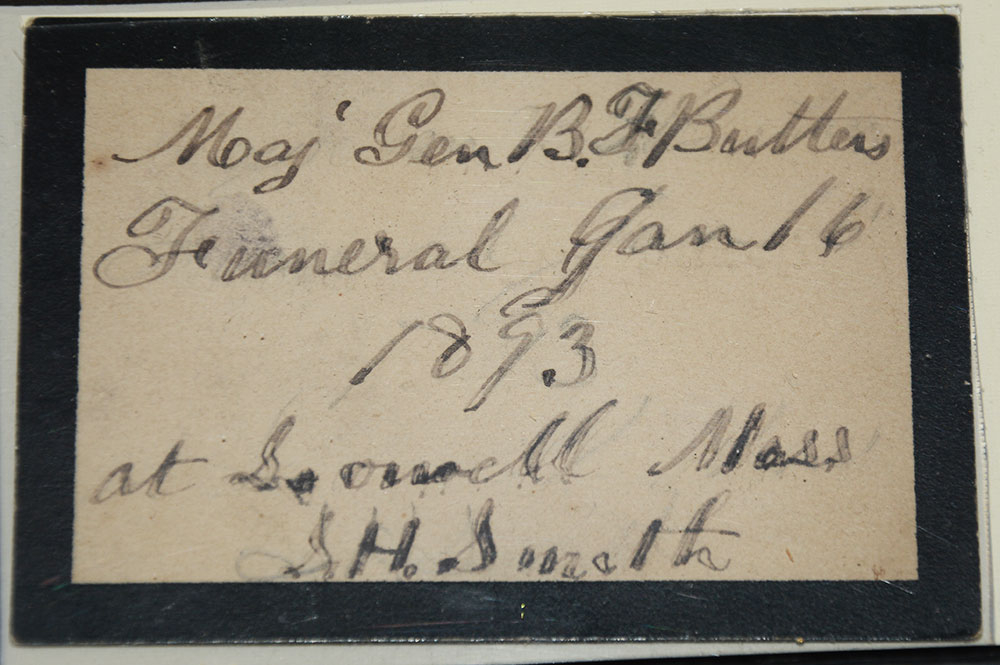 Maj Gen B. F Butlers
Funeral Jan 16
1893
at Lowell Mass
S. H. Smith